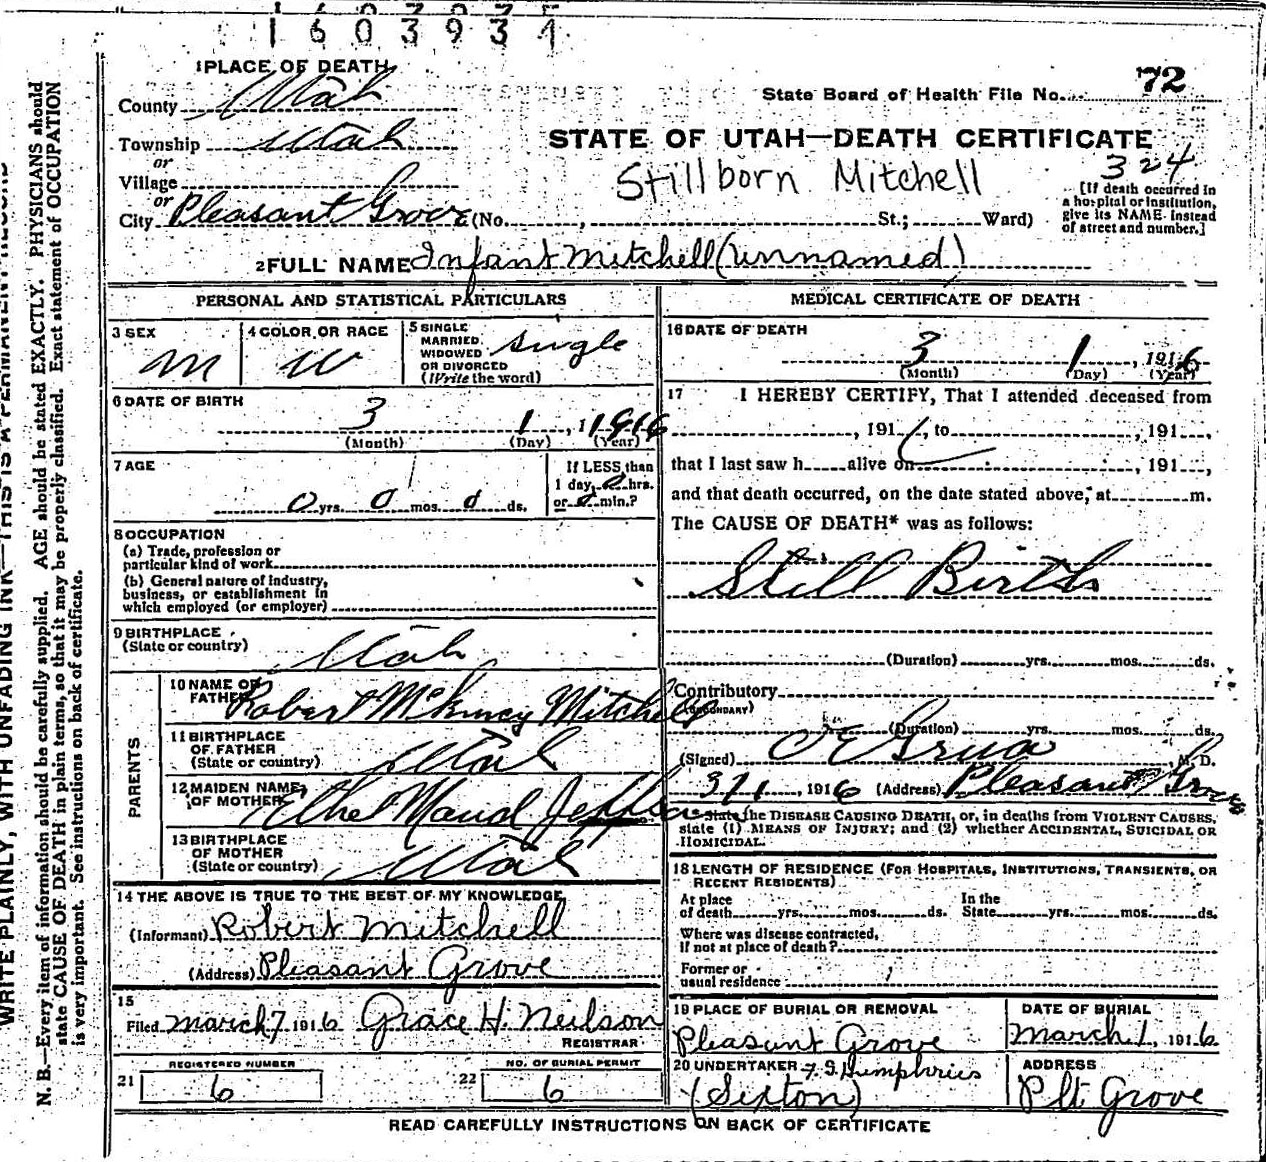 1603934
1 PLACE OF DEATH
County Utah
Township Utah
or
Village
or
City Pleasant Grove (No. , St.; Ward)
State Board of Health File No. 72
STATE OF UTAH—DEATH CERTIFICATE
324
Stillborn Mitchell
[If death occurred in
a hospital or institution,
give its NAME instead
of street and number.]
2 FULL NAME Infant Mitchell (unnamed)
PERSONAL AND STATISTICAL PARTICULARS
3 SEX
M
4 COLOR OR RACE
W
5 SINGLE
MARRIED
WIDOWED
OR DIVORCED
(Write the word)
single
6 DATE OF BIRTH
3 1, 1916
(Month) (Day) (Year)
7 AGE
0 yrs. 0 mos. 0 ds.
If LESS than
1 day, 0 hrs.
or 0 min.?
8 OCCUPATION
(a) Trade, profession or
particular kind of work
(b) General nature of industry,
business, or establishment in
which employed (or employer)
9 BIRTHPLACE
(State or country) Utah
PARENTS
10 NAME OF
FATHER Robert McKinney Mitchell
11 BIRTHPLACE
OF FATHER
(State or country) Utah
12 MAIDEN NAME
OF MOTHER Ethel Maud
13 BIRTHPLACE
OF MOTHER
(State or country) Utah
14 THE ABOVE IS TRUE TO THE BEST OF MY KNOWLEDGE
(Informant) Robert Mitchell
(Address) Pleasant Grove
15
Filed March 7 1916 Grace H. Neilson
REGISTRAR
REGISTERED NUMBER
21 6
NO. OF BURIAL PERMIT
22 6
MEDICAL CERTIFICATE OF DEATH
16 DATE OF DEATH
3 1, 1916
(Month) (Day) (Year)
17 I HEREBY CERTIFY, That I attended deceased from
, 191 , to , 191 ,
that I last saw h alive on , 191 ,
and that death occurred, on the date stated above, at m.
The CAUSE OF DEATH* was as follows:
Still Birth
(Duration) yrs. mos. ds.
Contributory
(SECONDARY)
(Duration) yrs. mos. ds.
(Signed) O E Grua, M. D.
3/1, 1916 (Address) Pleasant Grove
*State the DISEASE CAUSING DEATH, or, in deaths from VIOLENT CAUSES,
state (1) MEANS OF INJURY; and (2) whether ACCIDENTAL, SUICIDAL OR
HOMICIDAL.
18 LENGTH OF RESIDENCE (FOR HOSPITALS, INSTITUTIONS, TRANSIENTS, OR
RECENT RESIDENTS)
At place
of death yrs. mos. ds.
In the
State yrs. mos. ds.
Where was disease contracted,
if not at place of death?
Former or
usual residence
19 PLACE OF BURIAL OR REMOVAL
Pleasant Grove
DATE OF BURIAL
March 1, 1916
20 UNDERTAKER Humphries
(Sexton)
ADDRESS
Plt Grove
READ CAREFULLY INSTRUCTIONS ON BACK OF CERTIFICATE
WRITE PLAINLY, WITH UNFADING INK—THIS IS A PERMANENT RECORD
N. B.—Every item of information should be carefully supplied. AGE should be stated EXACTLY. PHYSICIANS should
state CAUSE OF DEATH in plain terms, so that it may be properly classified. Exact statement of OCCUPATION
is very important. See instructions on back of certificate.